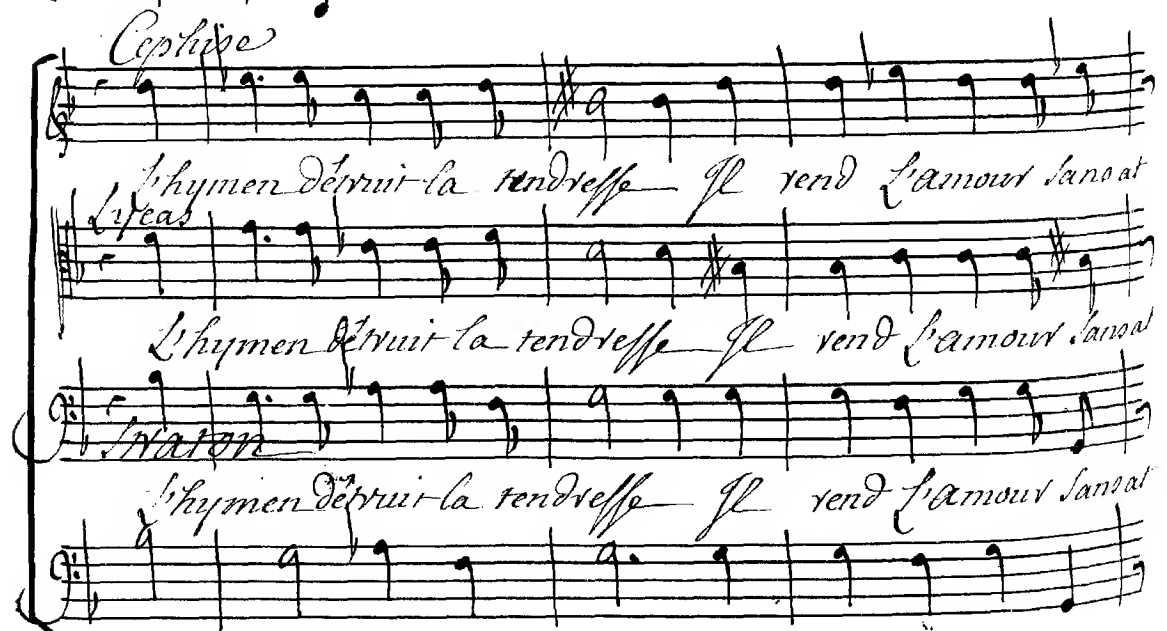 Cephise
L'hymen détruit la tendresse Il rend L'amour Sans at
Lycas
L'hymen détruit la tendresse Il rend L'amour Sans at
Straton
L'hymen détruit la tendresse Il rend L'amour Sans at